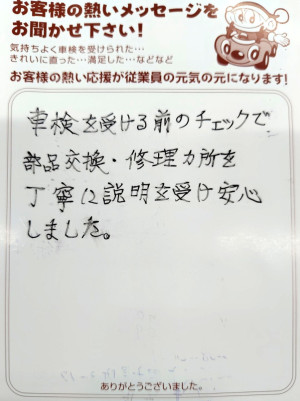 お客様の熱いメッセージを
お聞かせ下さい!
気持ちよく車検を受けられた…
きれいに直った…満足した…などなど
お客様の熱い応援が従業員の元気の元になります!
車検を受ける前のチェックで
部品交換・修理カ所を
丁寧に説明を受け安心
しました。
ありがとうございました。